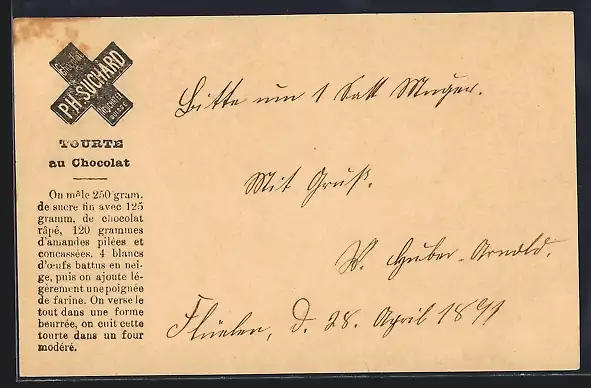 PH. SUCHARD
TOURTE
au Chocolat
On mêle 250 gram.
de sucre fin avec 125
gramm, de chocolat
râpé, 120 grammes
d'amandes pilées et
concassées, 4 blancs
d'œufs battus en nei-
ge, puis on ajoute lé-
gèrement une poignée
de farine. On verse le
tout dans une forme
beurrée, on cuit cette
tourte dans un four
modéré.
Bitte um 1 Sack
Mit Gruß.
W. Huber-Arnold.
Flüelen, d. 28. April 1891